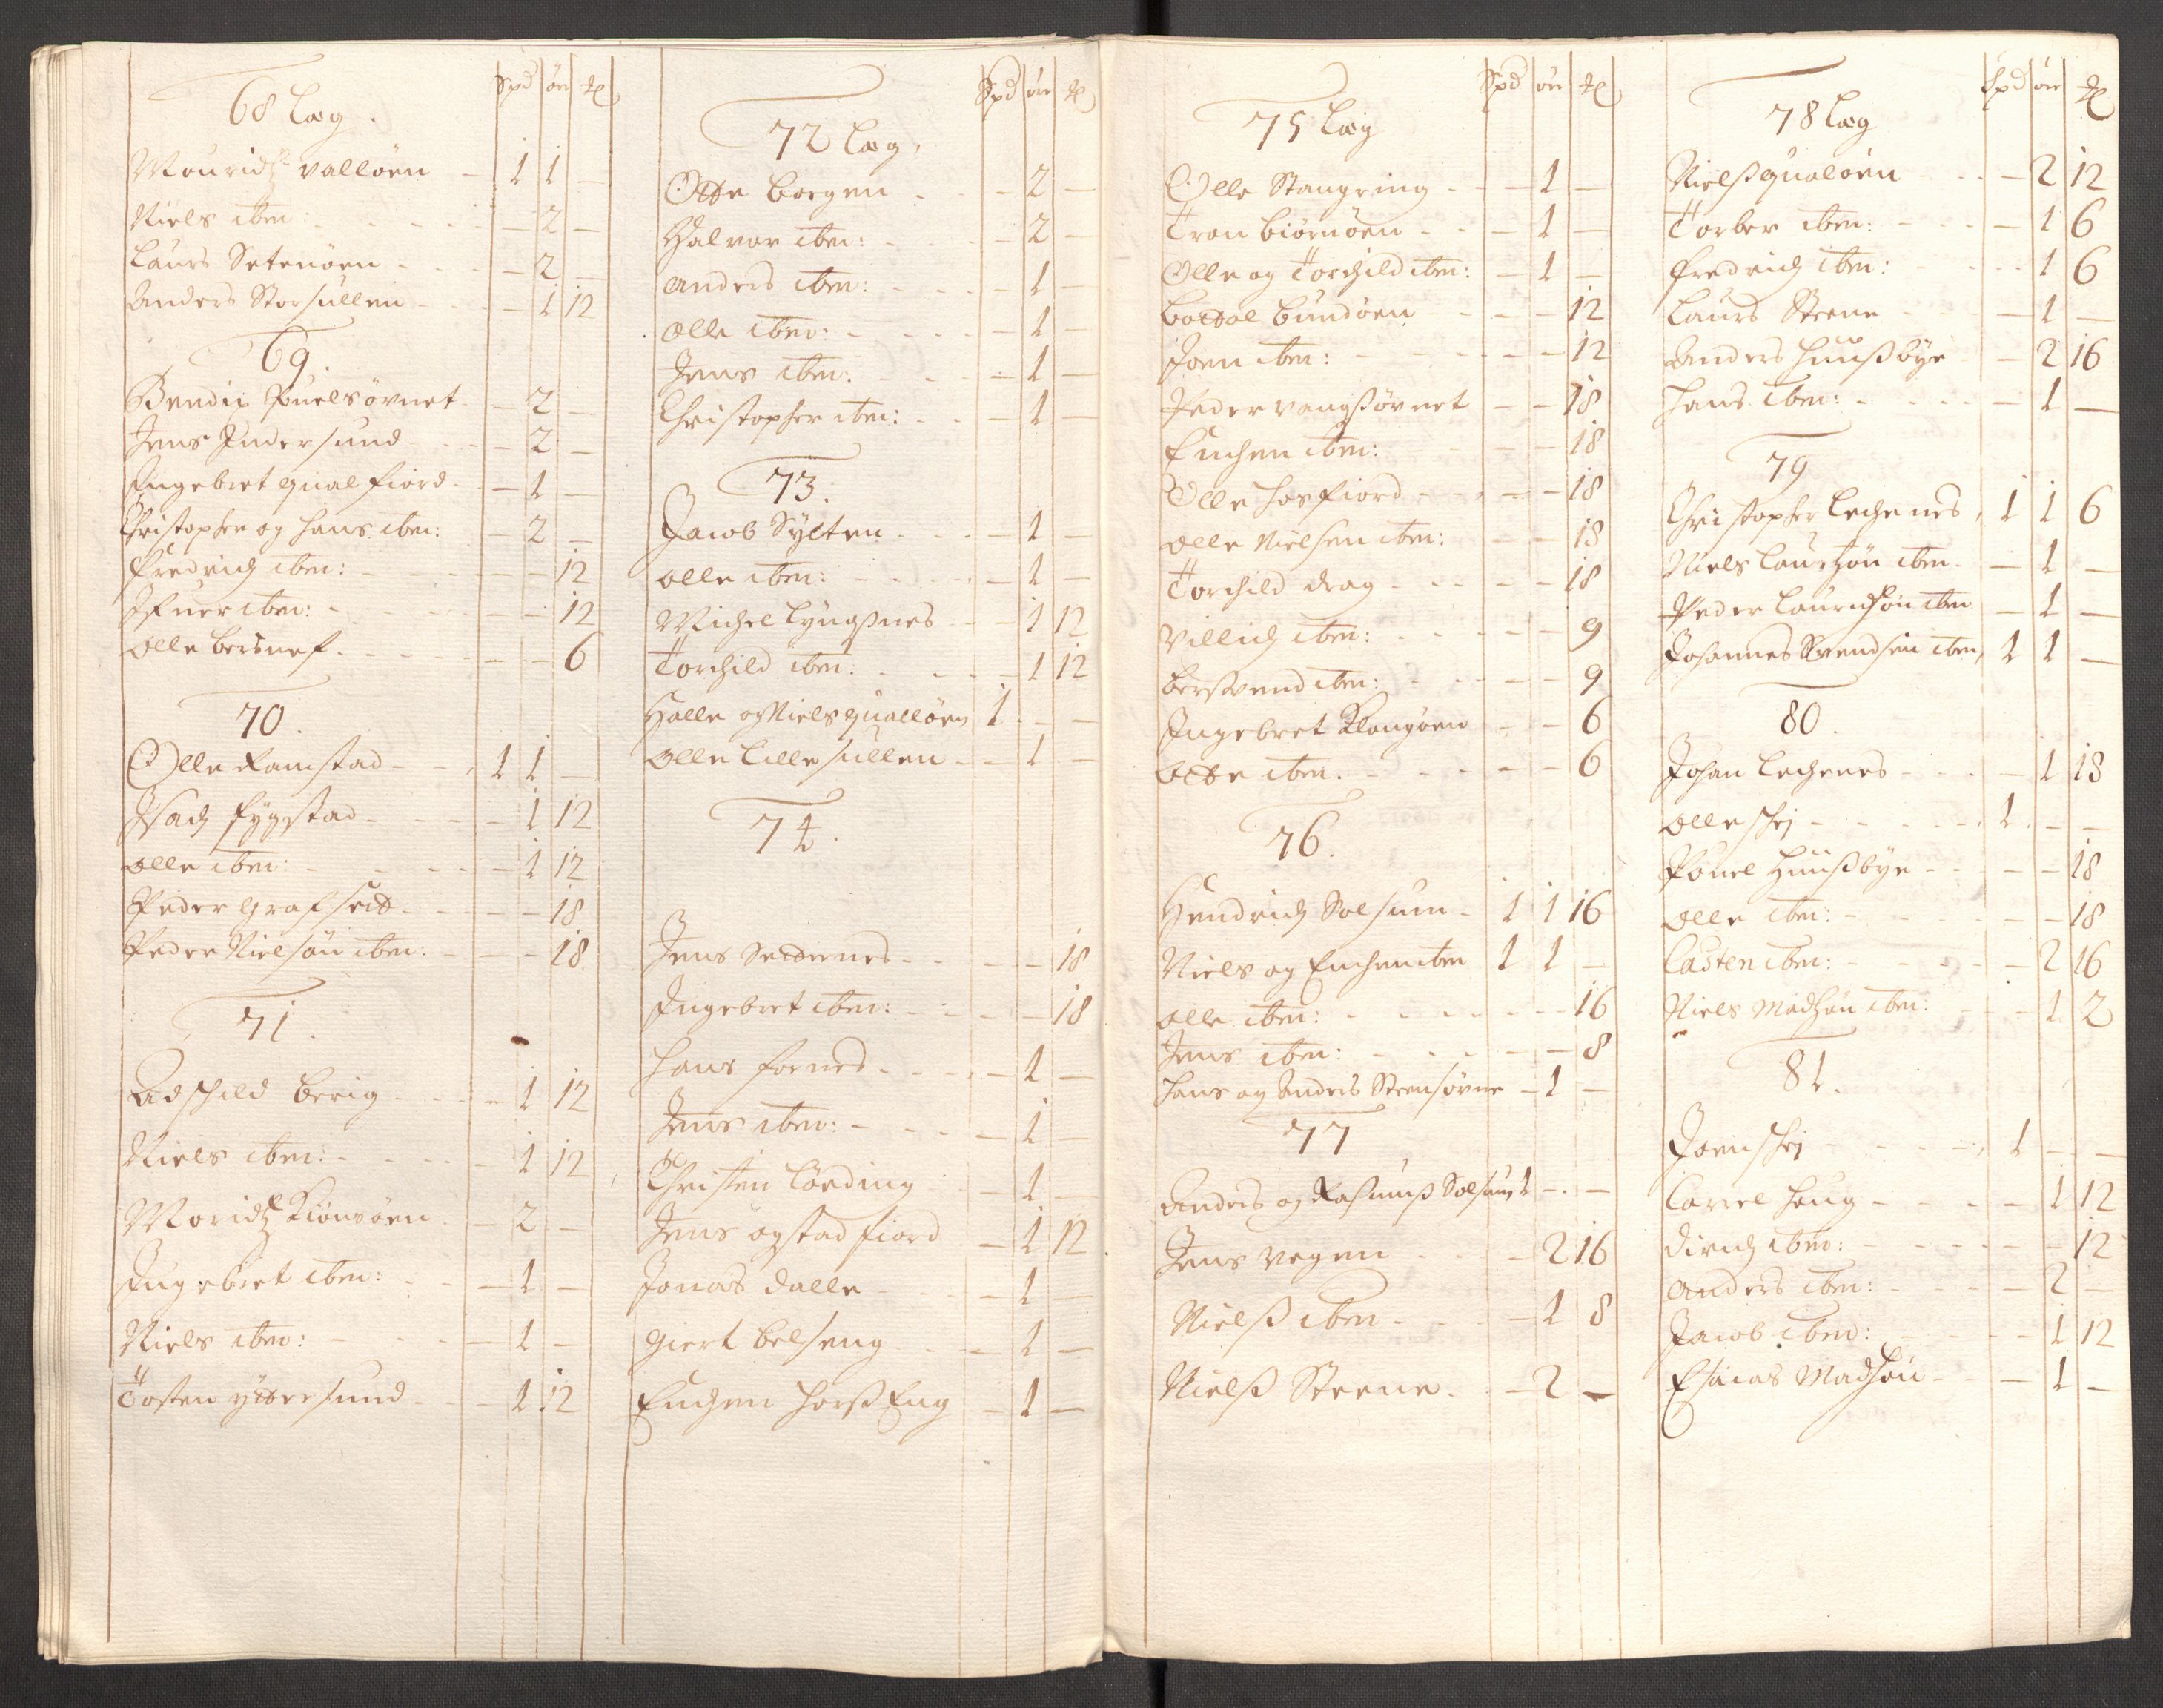 68 Læg.
Spd ör ₰
Mouridtz Valløen - 1 1 -
Niels ibm: - 2 -
Laurs Setenøen - 2 -
Anders Storsullen - 1 12
69.
Bendix Puelsøvnet - 2 -
Jens Indersund - 2 -
Ingebret qualfiord - 1 -
Christopher og Hans ibm: - 2 -
Fredrich ibm: - - 12
Ifuer ibm: - - 12
Olle bersnes - - 6
70.
Olle Ramstad - 1 1 -
Isach fygstad - 1 12
Olle ibm: - 1 12
Peder Grafseth - - 18
Peder Nielsøn ibm: - - 18
71.
Adschild berig - 1 12
Niels ibm: - 1 12
Moridtz Kiønsøen - 2 -
Ingebret ibm: - 1 -
Niels ibm: - 1 -
Tosten yttersund - 1 12
72 Læg.
Spd ör ₰
Otte borgen - 2 -
Halvor ibm: - 2 -
Anders ibm: - 1 -
Olle ibm: - 1 -
Jens ibm: - 1 -
Christopher ibm: - 1 -
73.
Jacob Sylten - 1 -
Olle ibm: - 1 -
Michel Lyngsnes - 1 12
Torchild ibm: - 1 12
Halle og Niels qualløen 1 - -
Olle Lillesullen - 1 -
74.
Jens Setternes - - 18
Ingebret ibm: - - 18
Hans fornes - 1 -
Jens ibm: - 1 -
Christen Lørding - 1 -
Jens ogstadfiord - 1 12
Jonas dalle - 1 -
Giert belseng - 1 -
Enchen HorßEng - 1 -
75 Læg
Spd ör ₰
Olle Stangring - 1 -
Tron biørnøen - 1 -
Olle og Torchild ibm: - 1 -
bottol bundøen - - 12
Joen ibm: - - 12
Peder vangsøvnet - - 18
Enchen ibm: - - 18
Olle Hosfiord - - 18
Olle Nielsen ibm: - - 18
Torchild drag - - 18
Villich ibm: - - 9
bersvend ibm: - - 9
Ingebret Klangøen - - 6
Otte ibm. - - 6
76.
Hendrich Solsum - 1 1 16
Niels og Enchen ibm 1 1 -
Olle ibm: - - 16
Jens ibm: - - 8
Hans og Anders Steensøvne - 1 -
77
Anders og Rasmuß Solsum 1 - -
Jens vegen - 2 16
Nielß ibm - 1 8
Nielß Steene - 2 -
78 Læg
Spd ör ₰
Nielß qualøen - 2 12
Torber ibm: - 1 6
Fredrich ibm: - 1 6
Laurs Steene - 1 -
Anders Huusbye - 2 16
Hans ibm: - 1 -
79
Christopher Lechenes, 1 1 6
Niels Laurtzøn ibm - 1 -
Peder Lauridsøn ibm - 1 -
Johannes Svendsen ibm, 1 1 -
80.
Johan Lechenes - 1 18
Olle schej - 1 - -
Pouel Huusbye - - 18
Olle ibm: - - 18
Casten ibm: - 2 16
Niels Madtzøn ibm: - 1 2
81.
Joen schej - 1 - -
Carrel Houg - 1 12
Dirich ibm: - - 12
Anders ibm: - 2 -
Jacob ibm: - 1 12
Esaias Madsøn - 1 -